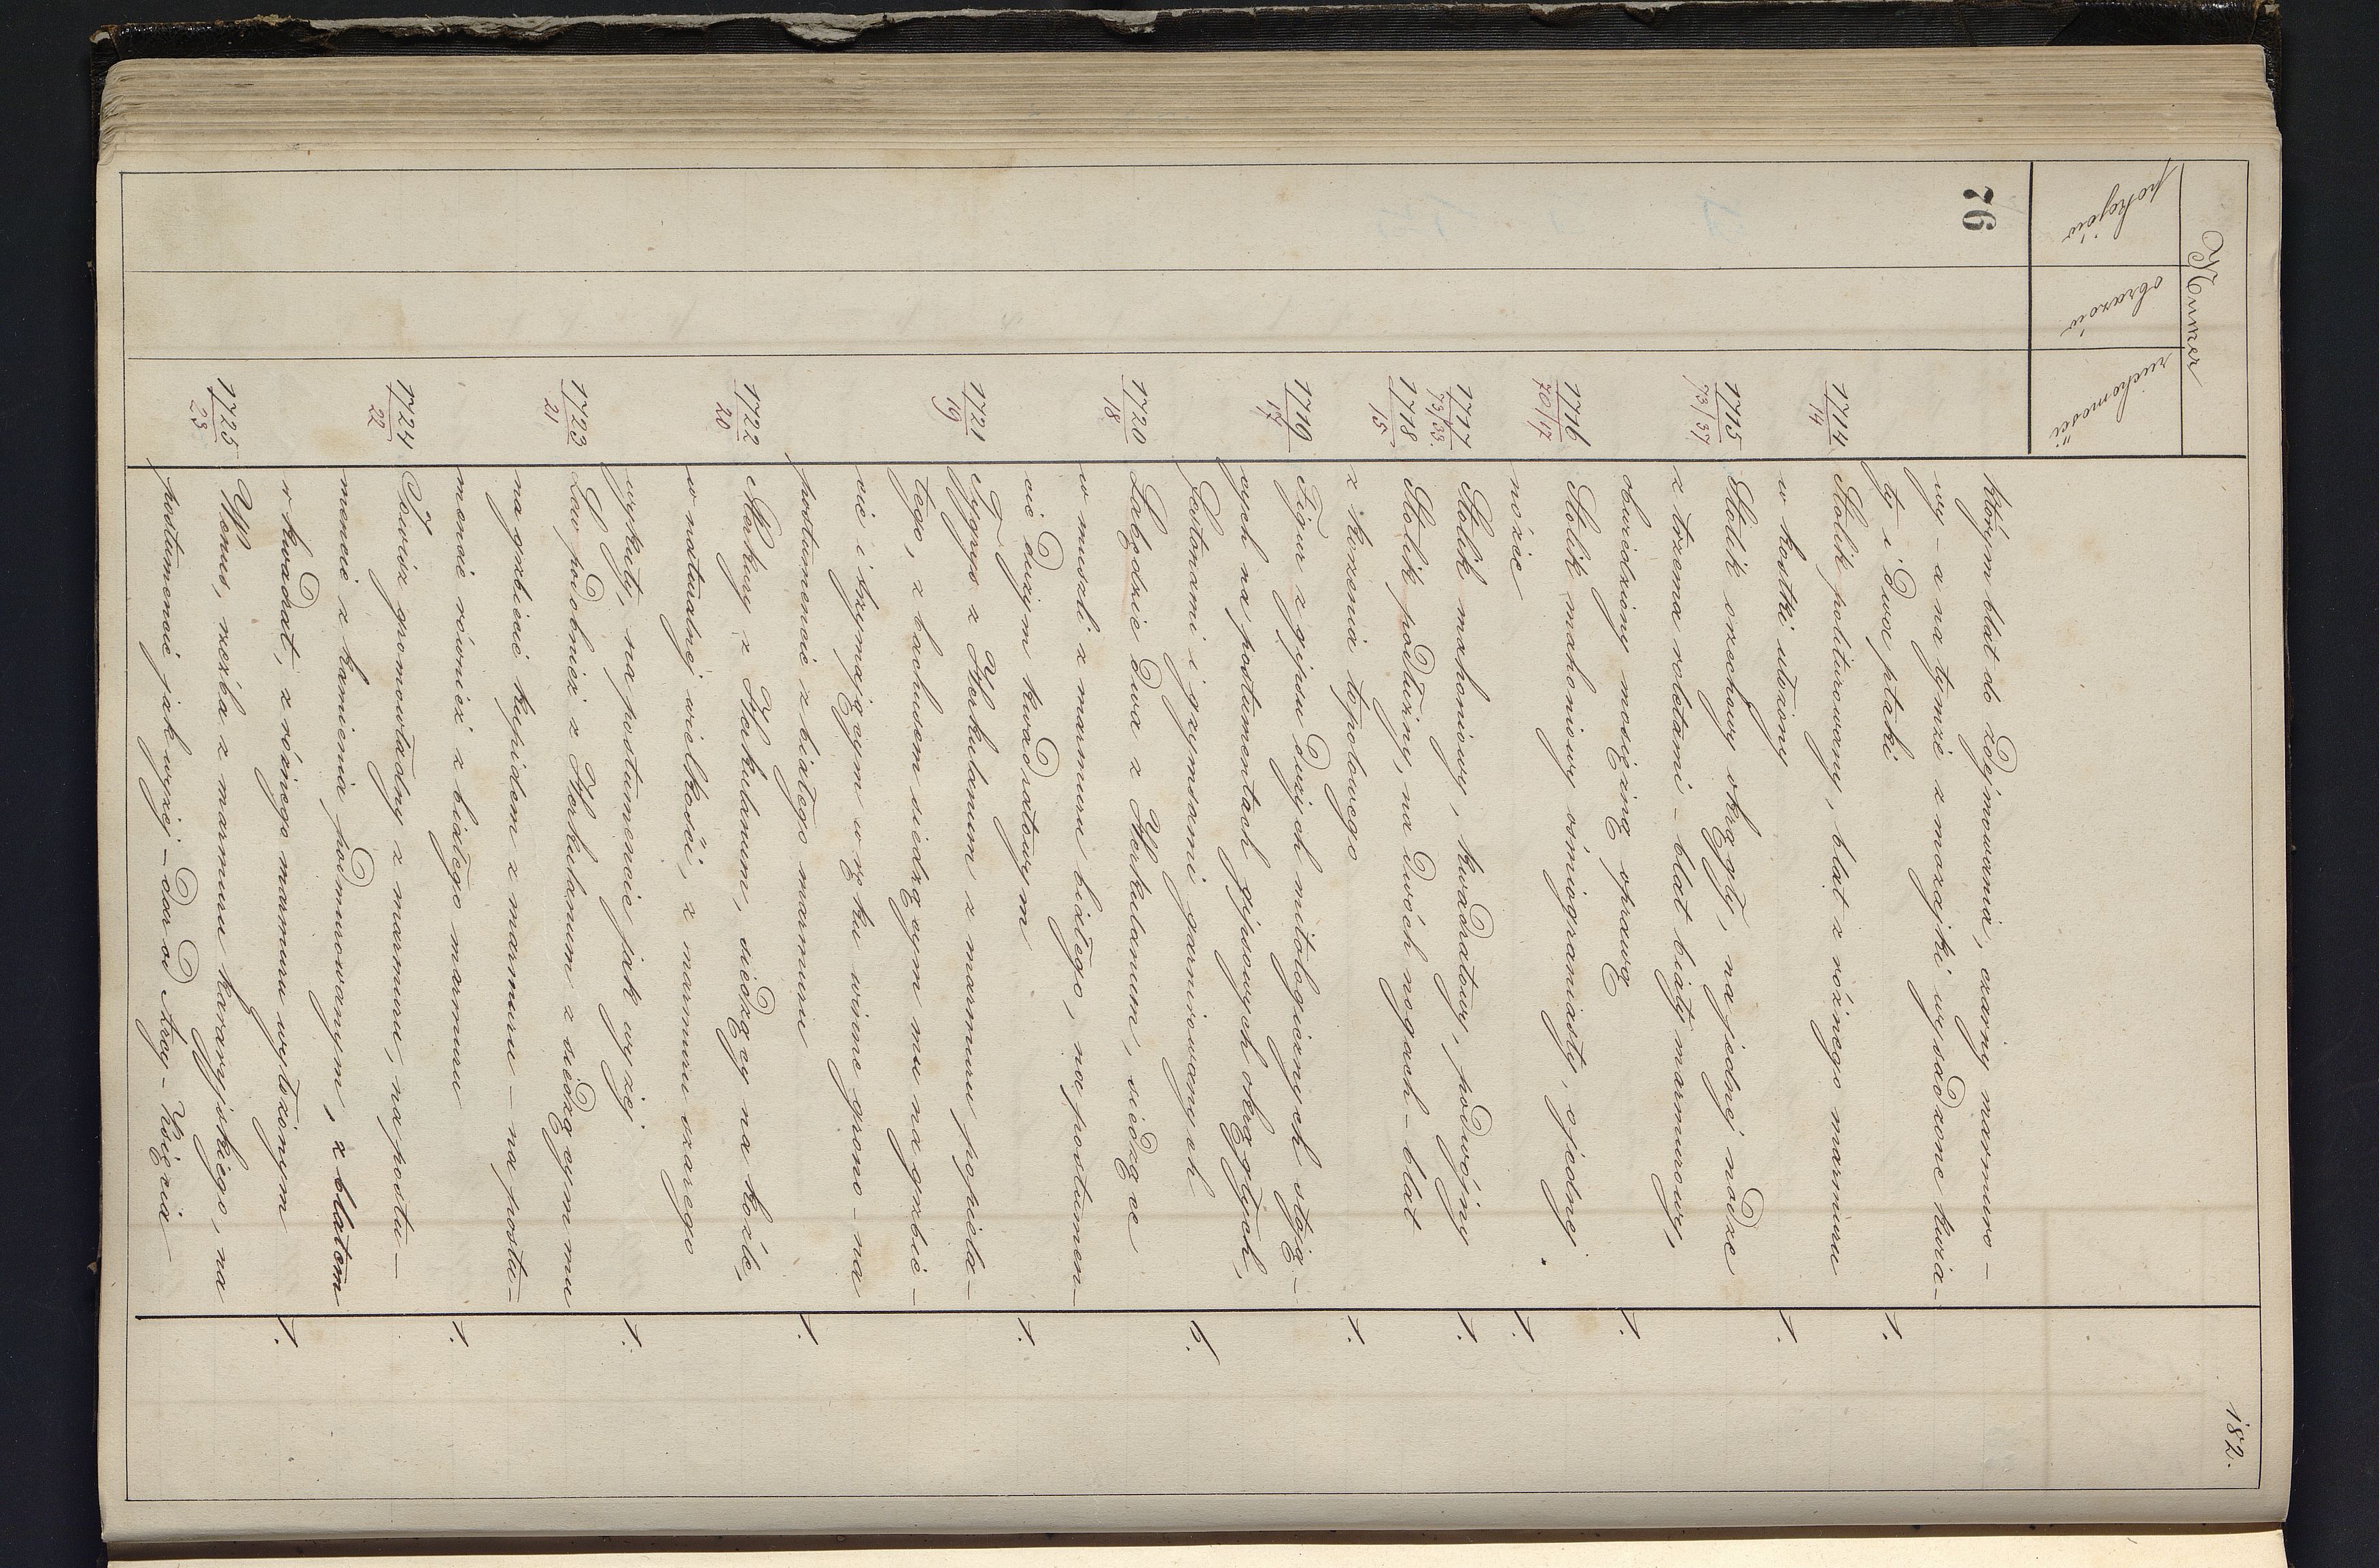 182.
Numer
pokojów obrazów ruchomości
76
którym blat do zdejmowania, czarny marmuro-
wy - a na tymże z mozajki wysadzone kwia-
ty i dwa ptaki 1.
1714/14 Stolik politurowany, blat z różnego marmuru
w kostki ułożony 1.
1715 73/37 Stolik orzechowy okrągły, na jednej nodze
z trzema roletami - blat biały marmurowy,
obwiedziony mosiężną oprawą 1.
1716 70/17 Stolik mahoniowy ośmiograniasty, o jednej
nóżce 1.
1717 73/33. Stolik mahoniowy, kwadratowy, podwójny 1.
1718/15 Stolik podłużny, na dwóch nogach - blat
z korzenia topolowego 1.
1719/17 Figur z gipsu dużych mitologicznych stoją-
cych na postumentach gipsowych okrągłych,
festonami i gzymsami garnirowanych 6.
1720/18 Łabędzie dwa z Herkulanum, siedzące
w muszli z marmuru białego, na postumen-
cie dużym kwadratowym 1.
1721/19 Tygrys z Herkulanum z marmuru popiela-
tego, z bachusem siedzącym mu na grzbie-
cie i trzymającym w ręku winne grono - na
postumencie z białego marmuru 1.
1722/20 Merkury z Herkulanum, siedzący na koźle,
w naturalnej wielkości, z marmuru szarego
wykuty, na postumencie jak wyżej 1.
1723/21 Lew podobnież z Herkulanum z siedzącym mu
na grzbiecie kupidem z marmuru - na postu-
mencie również z białego marmuru 1.
1724/22 Jowisz gromowładny z marmuru, na postu-
mencie z kamienia podmurowanym, z blatem
w kwadrat, z różnego marmuru wyłożonym 1.
1725/23 Wenus, rzeźba z marmuru kararyjskiego, na
postumencie jak wyżej - dar od